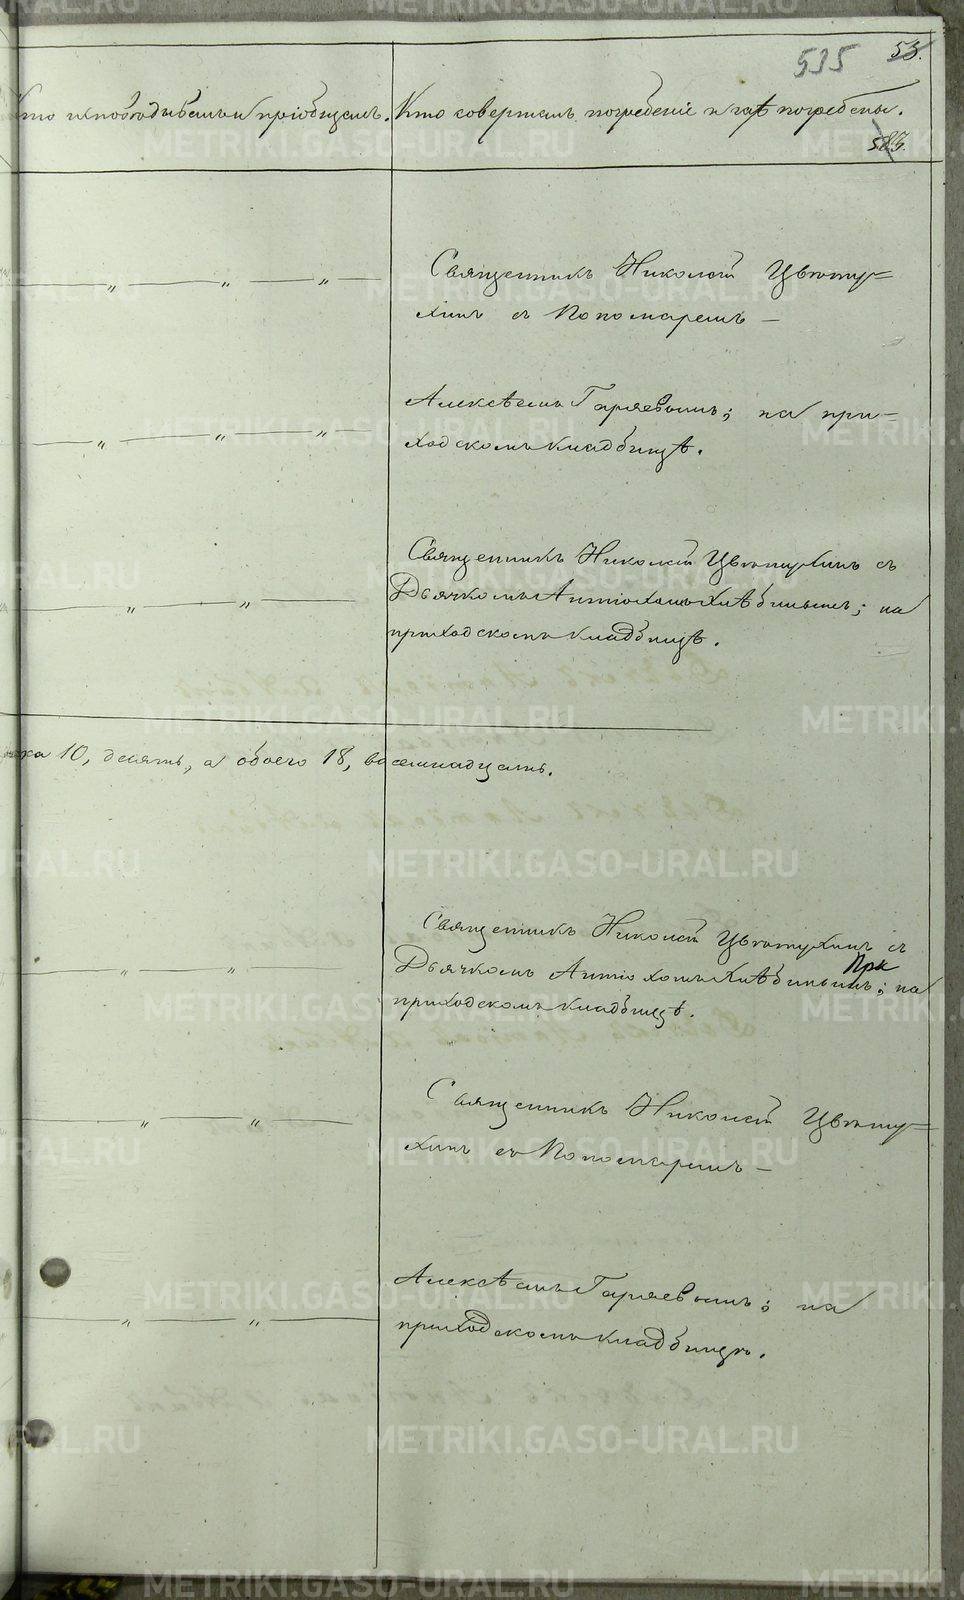 535 53.
Кто исповѣдывалъ и пріобщалъ. Кто совершалъ погребеніе и гдѣ погребены.
583.
Священникъ Николай Цвѣту=
хинъ съ Пономаремъ —
Алексѣемъ Гаряевымъ; на при-
ходскомъ кладбищѣ.
Священникъ Николай Цвѣтухинъ съ
Дьячкомъ Антіохомъ Хлѣбинымъ; на
приходскомъ кладбищѣ.
10, десять, а обоего 18, восемнадцать.
Священникъ Николай Цвѣтухинъ съ
Дьячкомъ Антіохомъ Хлѣбинымъ; на
приходскомъ кладбищѣ.
Священникъ Николай Цвѣту=
хинъ съ Пономаремъ —
Алексѣемъ Гаряевымъ; на
приходскомъ кладбищѣ.
METRIKI.GASO-URAL.RU